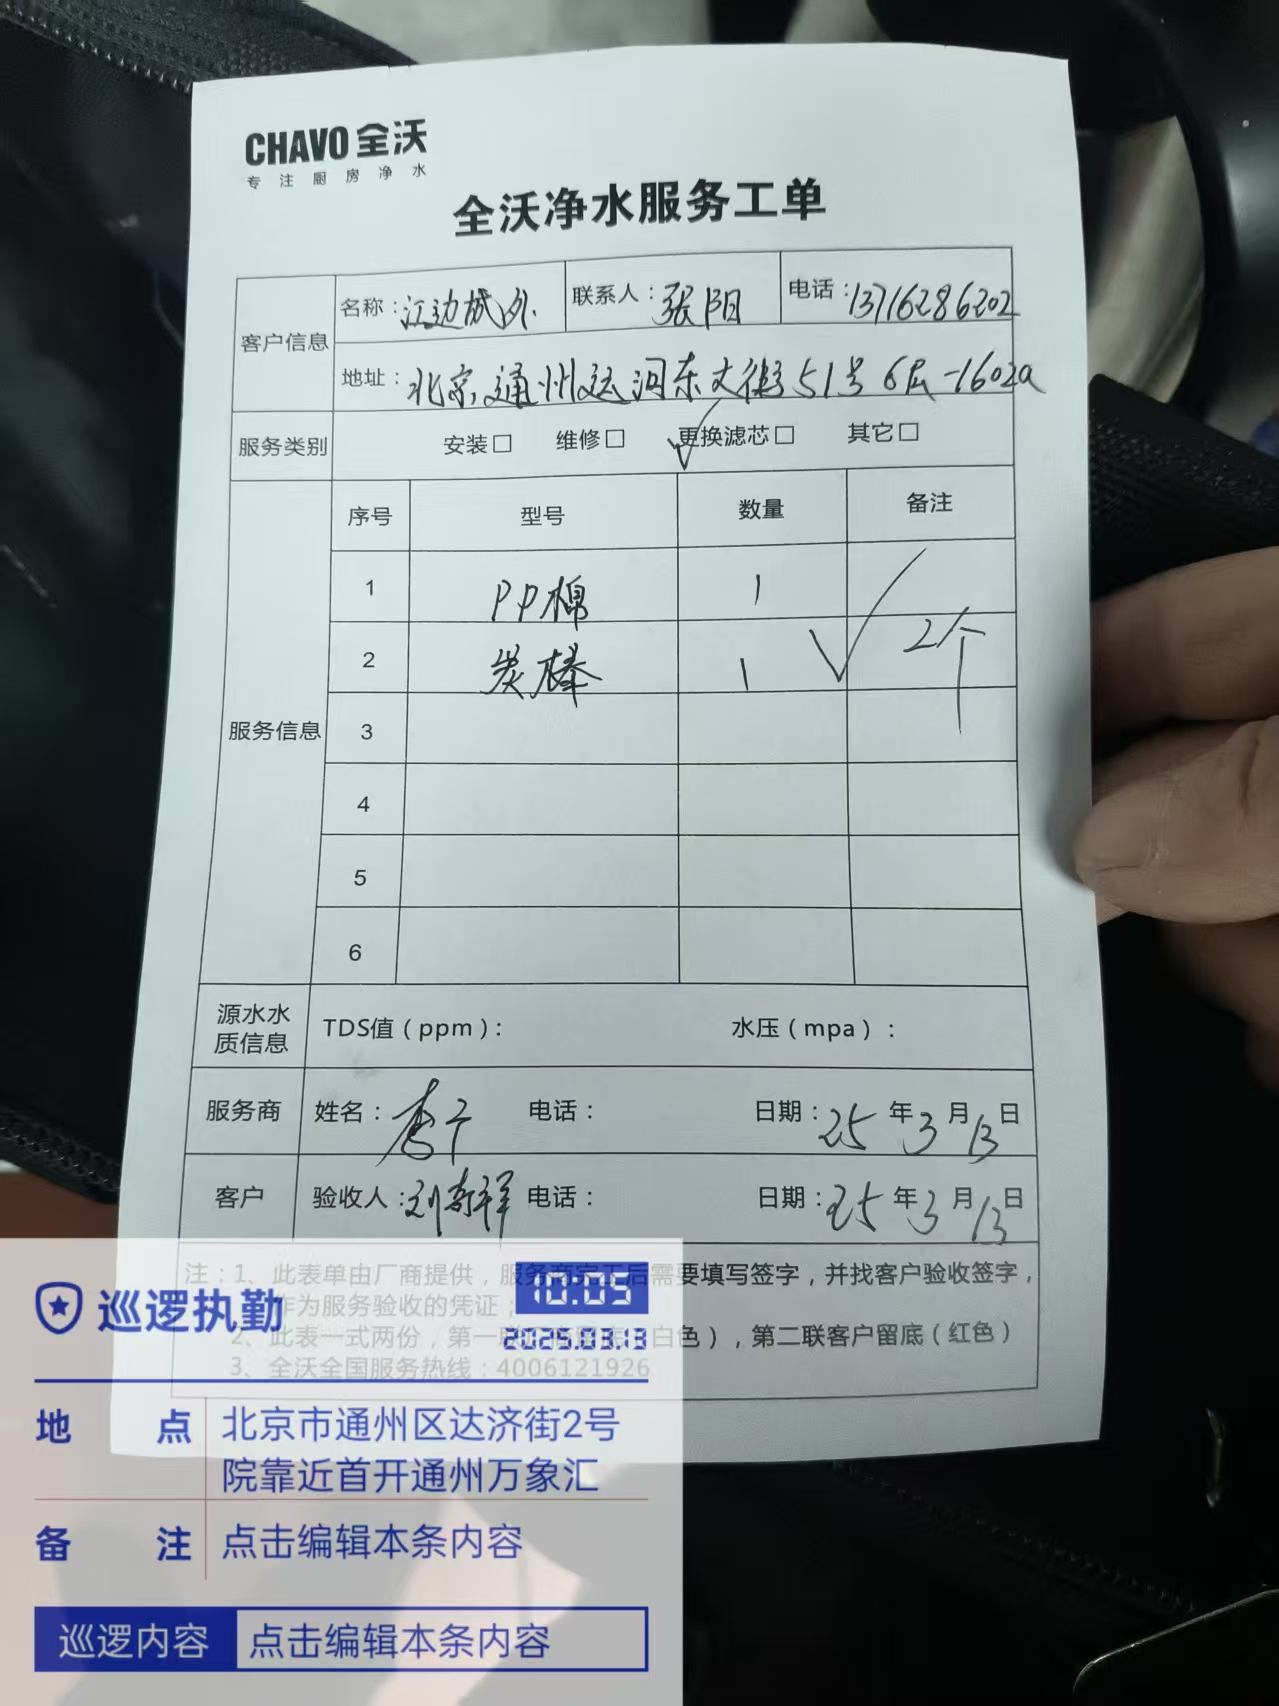 CHAVO 全沃
专注厨房净水
全沃净水服务工单
客户信息
名称：江边城外
联系人：张阳
电话：13716286202
地址：北京通州运河东大街51号6层-1602a
服务类别
安装□ 维修□ 更换滤芯□ 其它□
服务信息
序号 型号 数量 备注
1 PP棉 1
2 炭棒 1
2个
3
4
5
6
源水水质信息
TDS值（ppm）： 水压（mpa）：
服务商 姓名： 电话： 日期：25年3月13日
客户 验收人：刘奇祥 电话： 日期：25年3月13日
注：1、此表单由厂商提供，服务商完工后需要填写签字，并找客户验收签字，
作为服务验收的凭证；
2、此表一式两份，第一联 白色），第二联客户留底（红色）
3、全沃全国服务热线：4006121926
巡逻执勤
10:05
2025.03.13
地点 北京市通州区达济街2号
院靠近首开通州万象汇
备注 点击编辑本条内容
巡逻内容 点击编辑本条内容